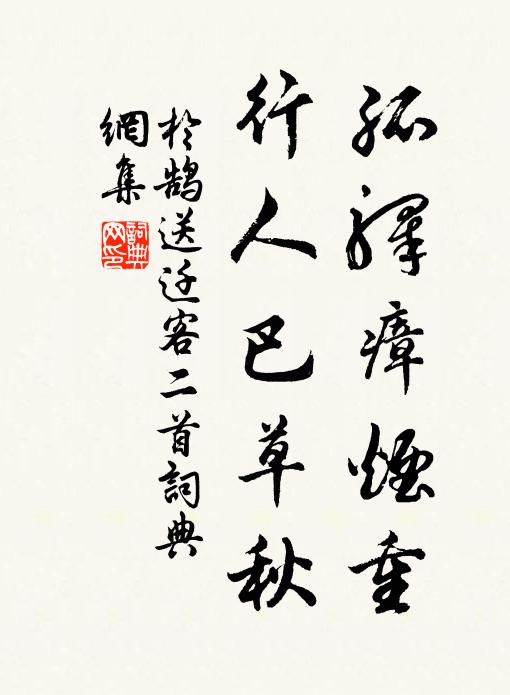 孤驛瘴煙重
行人巴草秋
於鵠送迁客二首詞典
網集
詞典
网印